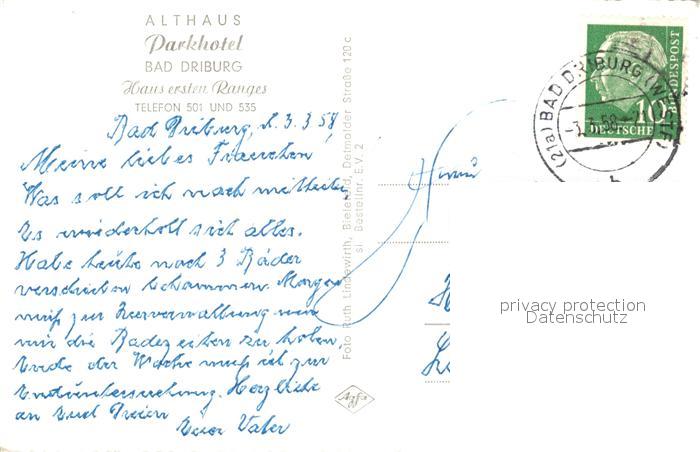 ALTHAUS
Parkhotel
BAD DRIBURG
Haus ersten Ranges
TELEFON 501 UND 535
Bad Driburg, d. 3.3.58
Meine liebes Frauchen
Was soll ich noch mitteilen
Es wiederholt sich alles.
Habe heute noch 3 Bäder
verschrieben bekommen. Morgen
muß zur Kurverwaltung um
mir die Badezeiten zu holen.
Ende der Woche muß ich zur
Enduntersuchung. Herzliche
an Euch Dreien
Euer Vater
Foto Ruth Lindewirth, Bielefeld, Detmolder Straße 120 c
Bestellnr. E.V. 2
Agfa
(21a) BAD DRIBURG (WESTF)
-3.3.58-
DEUTSCHE BUNDESPOST
10
privacy protection
Datenschutz